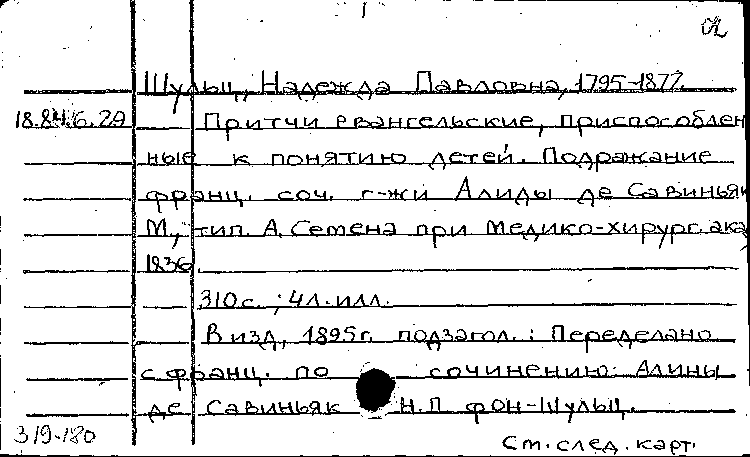 Шульц, Надежда Павловна, 1795-1877.
18.84.6.20 Притчи евангельские, приспособлен
ные к понятию детей. Подражание
франц. соч. г-жи Алиды де Савиньяк
М., тип. А. Семена при Медико-хирург. ака
1836.
310 с. ; 4 л. илл.
В изд, 1895г. подзагол. : Переделано
с франц. по сочинению Алины
де Савиньяк Н.П фон-Шульц.
319-180
См. след. карт.